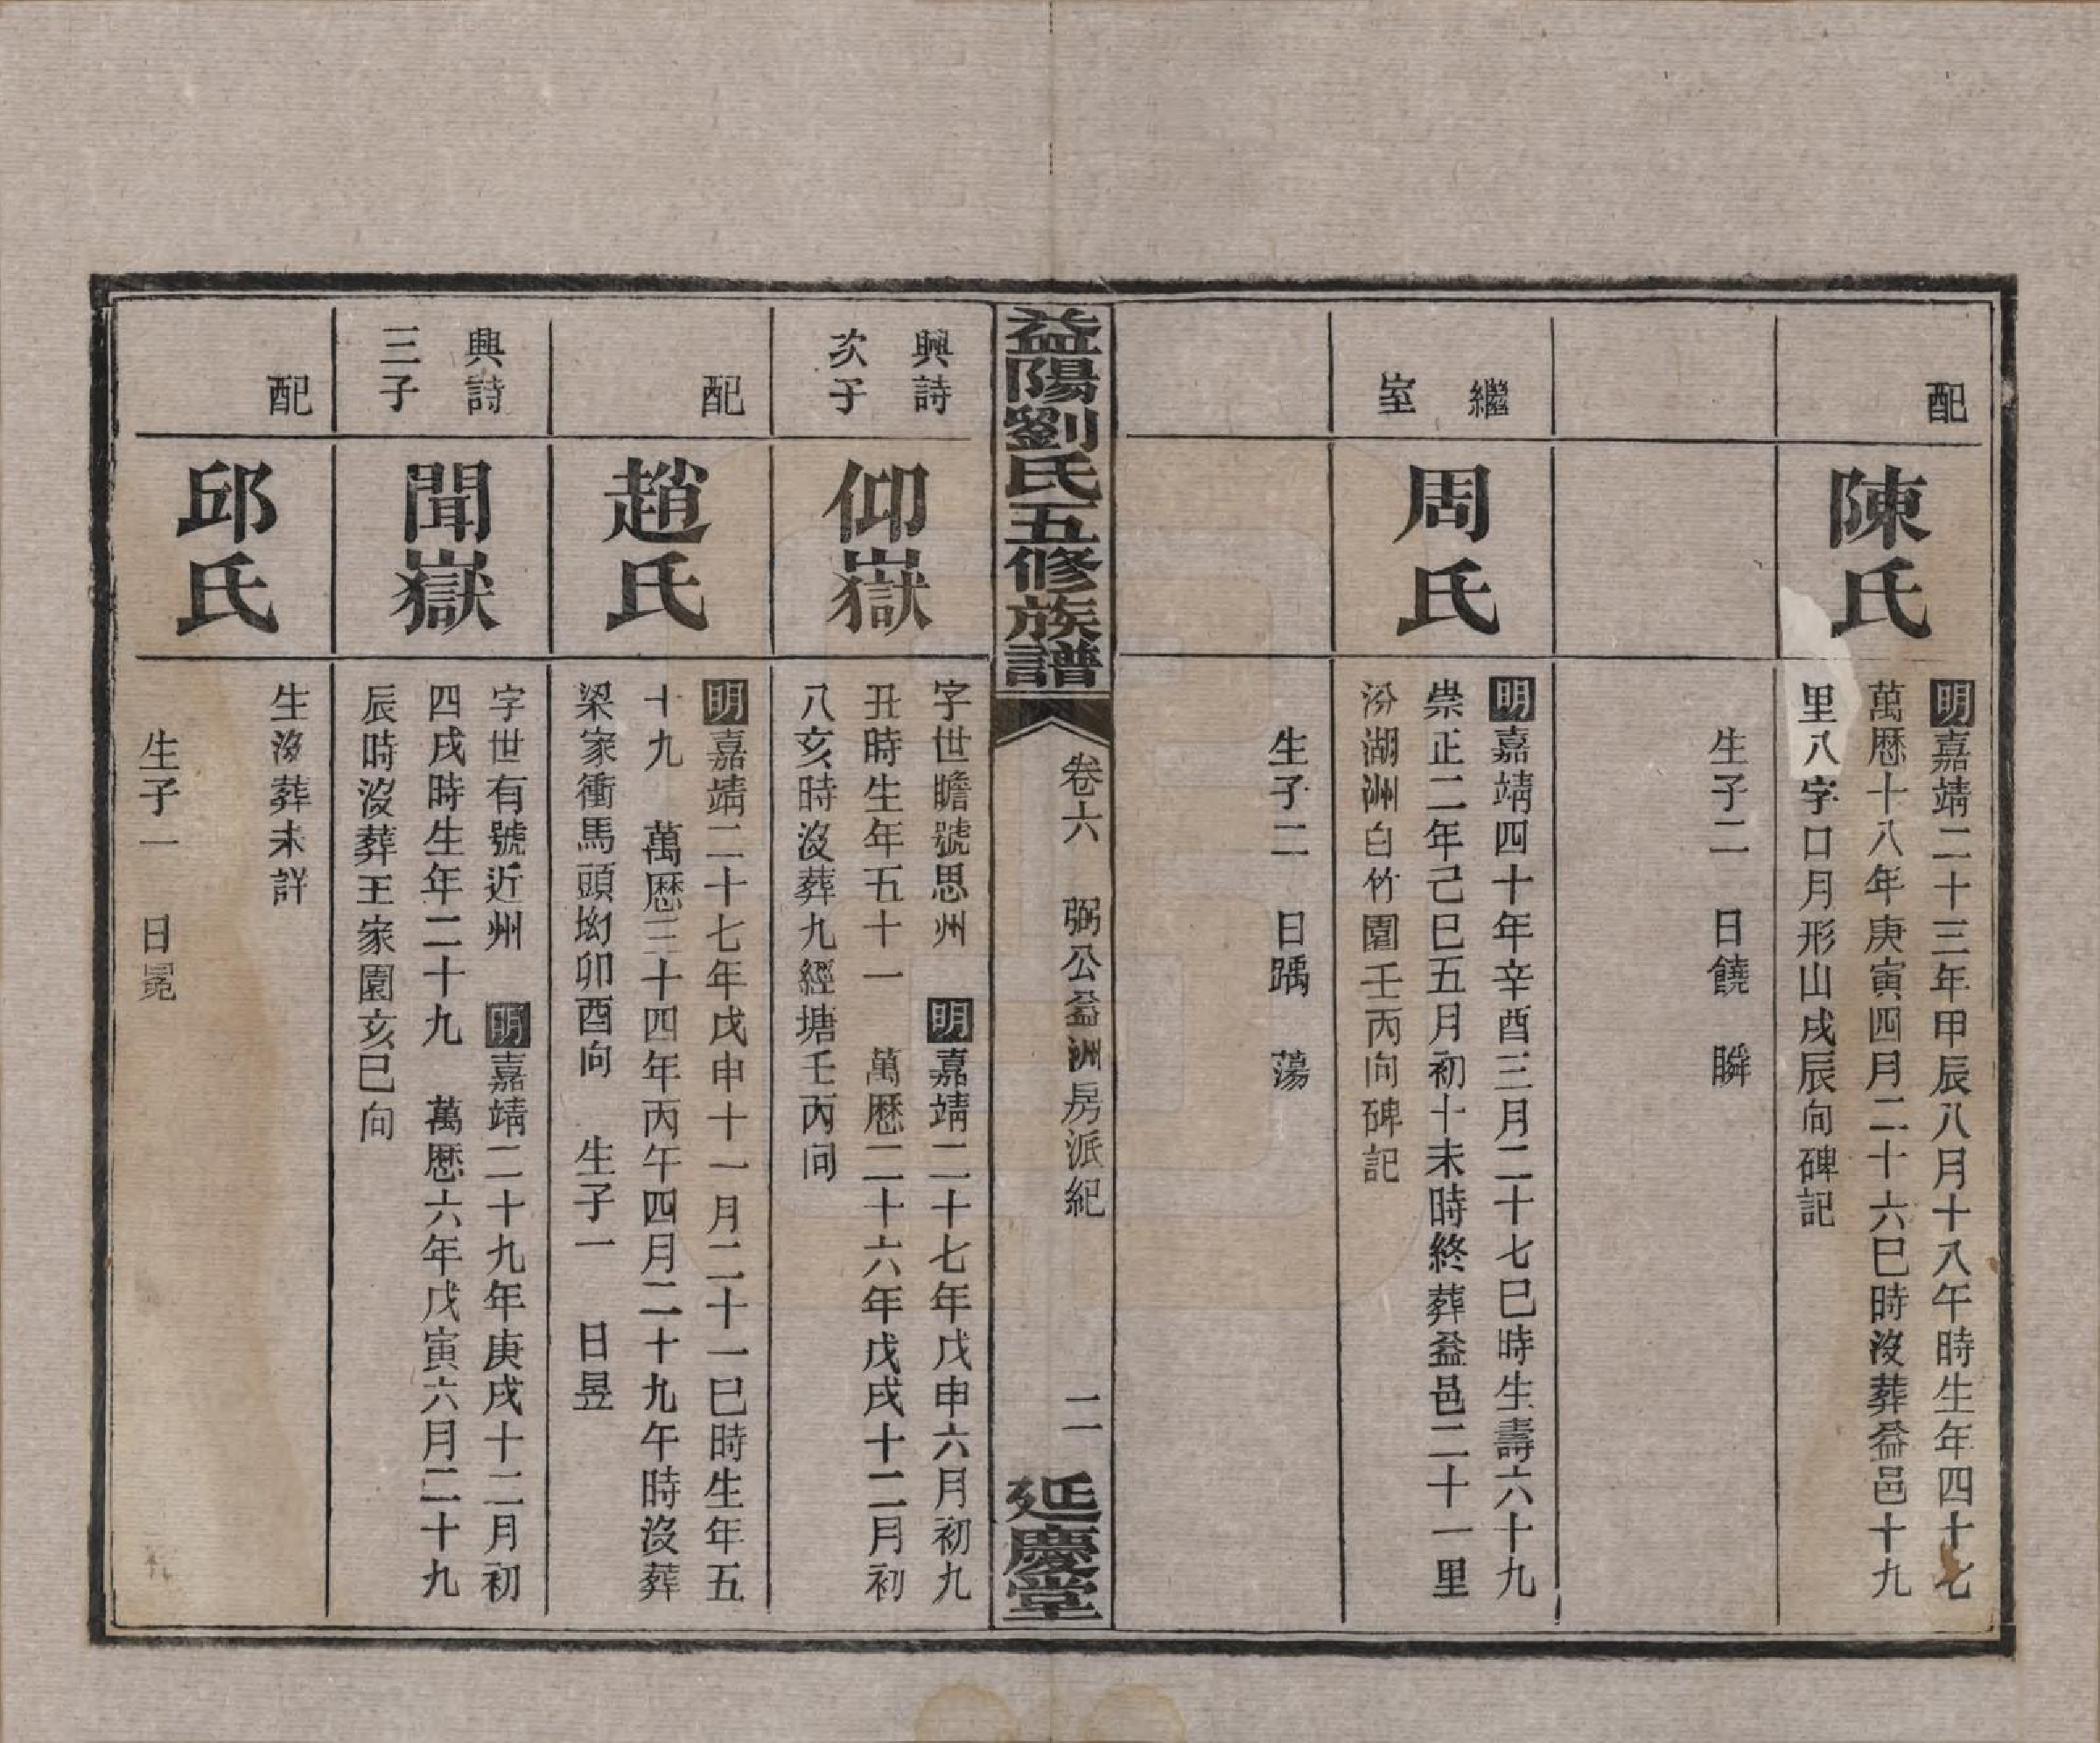 配
陳氏
明嘉靖二十三年甲辰八月十八午時生年四十七
萬歷十八年庚寅四月二十六巳時沒葬益邑十九
里八字口月形山戌辰向碑記
生子二　日饒　瞬
繼
室
周氏
明嘉靖四十年辛酉三月二十七巳時生壽六十九
崇正二年己巳五月初十未時終葬益邑二十一里
汾湖洲白竹園壬丙向碑記
生子二　日踽　蕩
益陽劉氏五修族譜
卷六　弼公益洲房派紀　二
延慶堂
興詩
次子
仰嶽
字世瞻號思州　明嘉靖二十七年戊申六月初九
丑時生年五十一　萬歷二十六年戊戌十二月初
八亥時沒葬九經塘壬丙向
配
趙氏
明嘉靖二十七年戊申十一月二十一巳時生年五
十九　萬歷三十四年丙午四月二十九午時沒葬
梁家衝馬頭坳卯酉向　生子一　日昱
興詩
三子
聞嶽
字世有號近州　明嘉靖二十九年庚戌十二月初
四戌時生年二十九　萬歷六年戊寅六月二十九
辰時沒葬王家園亥巳向
配
邱氏
生沒葬未詳
生子一　日冕